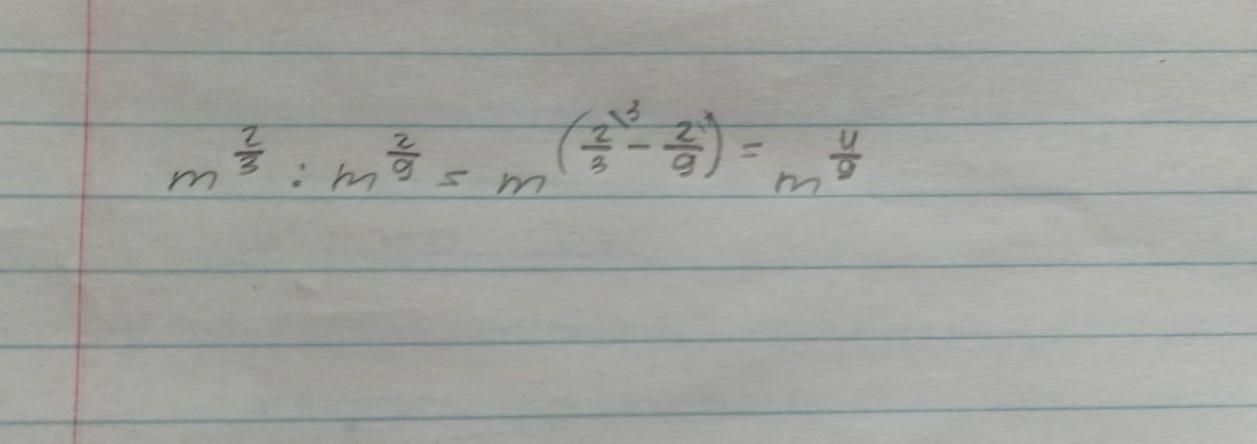 m^{\frac{2}{3}} : m^{\frac{2}{9}} = m^{\left(\frac{2}{3}^{\backslash 3} - \frac{2}{9}^{\backslash 1}\right)} = m^{\frac{4}{9}}